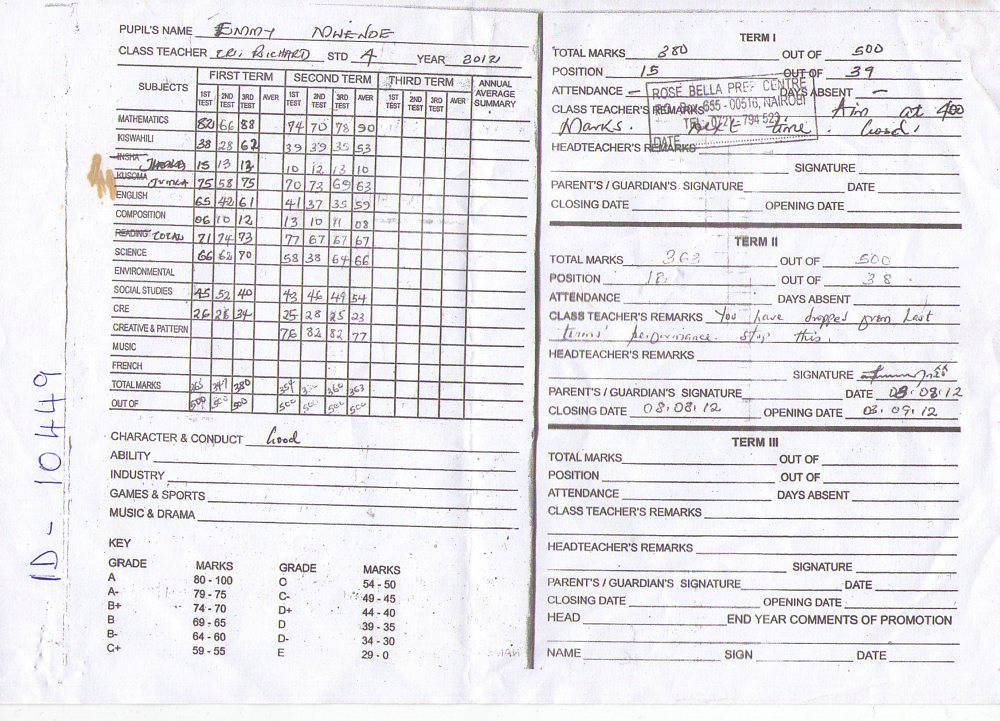 PUPIL'S NAME EMMY MWENDE
CLASS TEACHER TR. RICHARD STD 4 YEAR 2012
SUBJECTS FIRST TERM SECOND TERM THIRD TERM ANNUAL AVERAGE SUMMARY
1ST TEST 2ND TEST 3RD TEST AVER 1ST TEST 2ND TEST 3RD TEST AVER 1ST TEST 2ND TEST 3RD TEST AVER
MATHEMATICS 82 66 88 74 70 78 90
KISWAHILI 38 28 62 39 39 35 53
INSHA 15 13 12 10 12 13 10
KUSOMA JUMLA 75 58 75 70 73 69 63
ENGLISH 65 42 61 41 37 35 59
COMPOSITION 06 10 12 13 10 11 08
READING TOTAL 71 74 73 77 67 67 67
SCIENCE 66 62 70 58 38 64 66
ENVIRONMENTAL
SOCIAL STUDIES 45 52 40 43 46 49 54
CRE 26 28 34 25 28 25 23
CREATIVE & PATTERN 76 82 82 77
MUSIC
FRENCH
TOTAL MARKS 380 360 363
OUT OF 500 500 500 500 500 500 500
CHARACTER & CONDUCT Good
ABILITY
INDUSTRY
GAMES & SPORTS
MUSIC & DRAMA
KEY
GRADE MARKS GRADE MARKS
A 80 - 100 C 54 - 50
A- 79 - 75 C- 49 - 45
B+ 74 - 70 D+ 44 - 40
B 69 - 65 D 39 - 35
B- 64 - 60 D- 34 - 30
C+ 59 - 55 E 29 - 0
ID - 10449
TERM I
TOTAL MARKS 380 OUT OF 500
POSITION 15 OUT OF 39
ATTENDANCE - DAYS ABSENT -
CLASS TEACHER'S REMARKS Aim at 400
Marks. next time. Good!
ROSE BELLA PREP CENTRE
P.O. Box 655 - 00516, NAIROBI
TEL: 0721 - 794 523
DATE
HEADTEACHER'S REMARKS
SIGNATURE
PARENT'S / GUARDIAN'S SIGNATURE DATE
CLOSING DATE OPENING DATE
TERM II
TOTAL MARKS 363 OUT OF 500
POSITION 18 OUT OF 38
ATTENDANCE DAYS ABSENT
CLASS TEACHER'S REMARKS You have dropped from last
terms' performance. Stop this.
HEADTEACHER'S REMARKS
SIGNATURE
PARENT'S / GUARDIAN'S SIGNATURE DATE 08.08.12
CLOSING DATE 08.08.12 OPENING DATE 03.09.12
TERM III
TOTAL MARKS OUT OF
POSITION OUT OF
ATTENDANCE DAYS ABSENT
CLASS TEACHER'S REMARKS
HEADTEACHER'S REMARKS
SIGNATURE
PARENT'S / GUARDIAN'S SIGNATURE DATE
CLOSING DATE OPENING DATE
HEAD END YEAR COMMENTS OF PROMOTION
NAME SIGN DATE